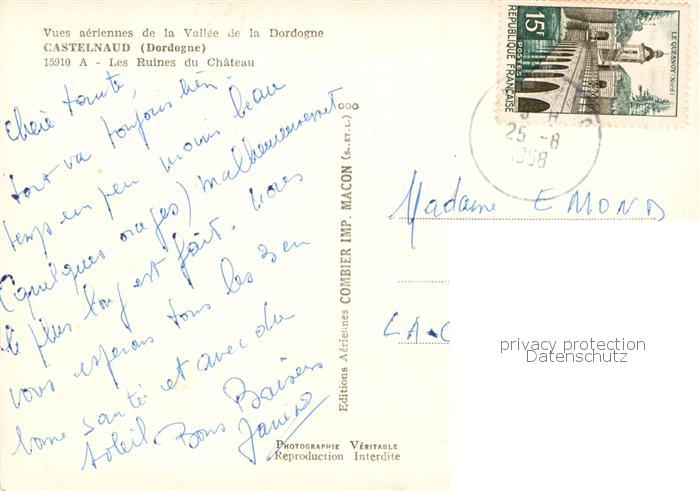 Vues aériennes de la Vallée de la Dordogne
CASTELNAUD (Dordogne)
15910 A - Les Ruines du Château
chère tante,
tout va toujours bien.
temps un peu moins beau
(quelques orages) malheureusement
le plus long est fait. Nous
vous espérons tous les en
bonne santé et avec du
soleil. Bons Baisers
Janine
Editions Aériennes COMBIER IMP. MACON (S.-ET-L.)
PHOTOGRAPHIE VÉRITABLE
Reproduction Interdite
15F
POSTES
RÉPUBLIQUE FRANÇAISE
LE QUESNOY-NORD
25 -8
1958
Madame EMOND
LA
privacy protection
Datenschutz